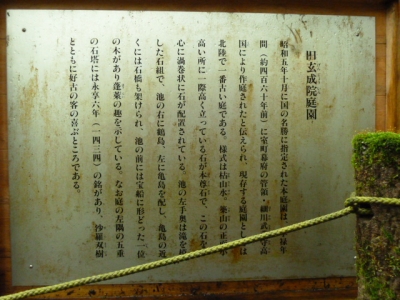 旧玄成院庭園
昭和五年十月に国の名勝に指定された本庭園は、享禄年
間(約四百六十年前)に室町幕府の管領・細川武蔵守高
国により作庭されたと伝えられ、現存する庭園としては
北陸で一番古い庭である。様式は枯山水。築山の正面
高い所に一際高く立っている石が本尊石で、この石を
心に渦巻状に石が配置されている。池の左手奥は滝を
した石組で、池の右に鶴島、左に亀島を配し、亀島の近
くには石橋も架けられ、池の前には宝船に形どった一位
の木があり蓬莱の趣を示している。なお庭の左隅の五重
の石塔には永享六年(一四三四)の銘があり、沙羅双樹
とともに好古の客の喜ぶところである。